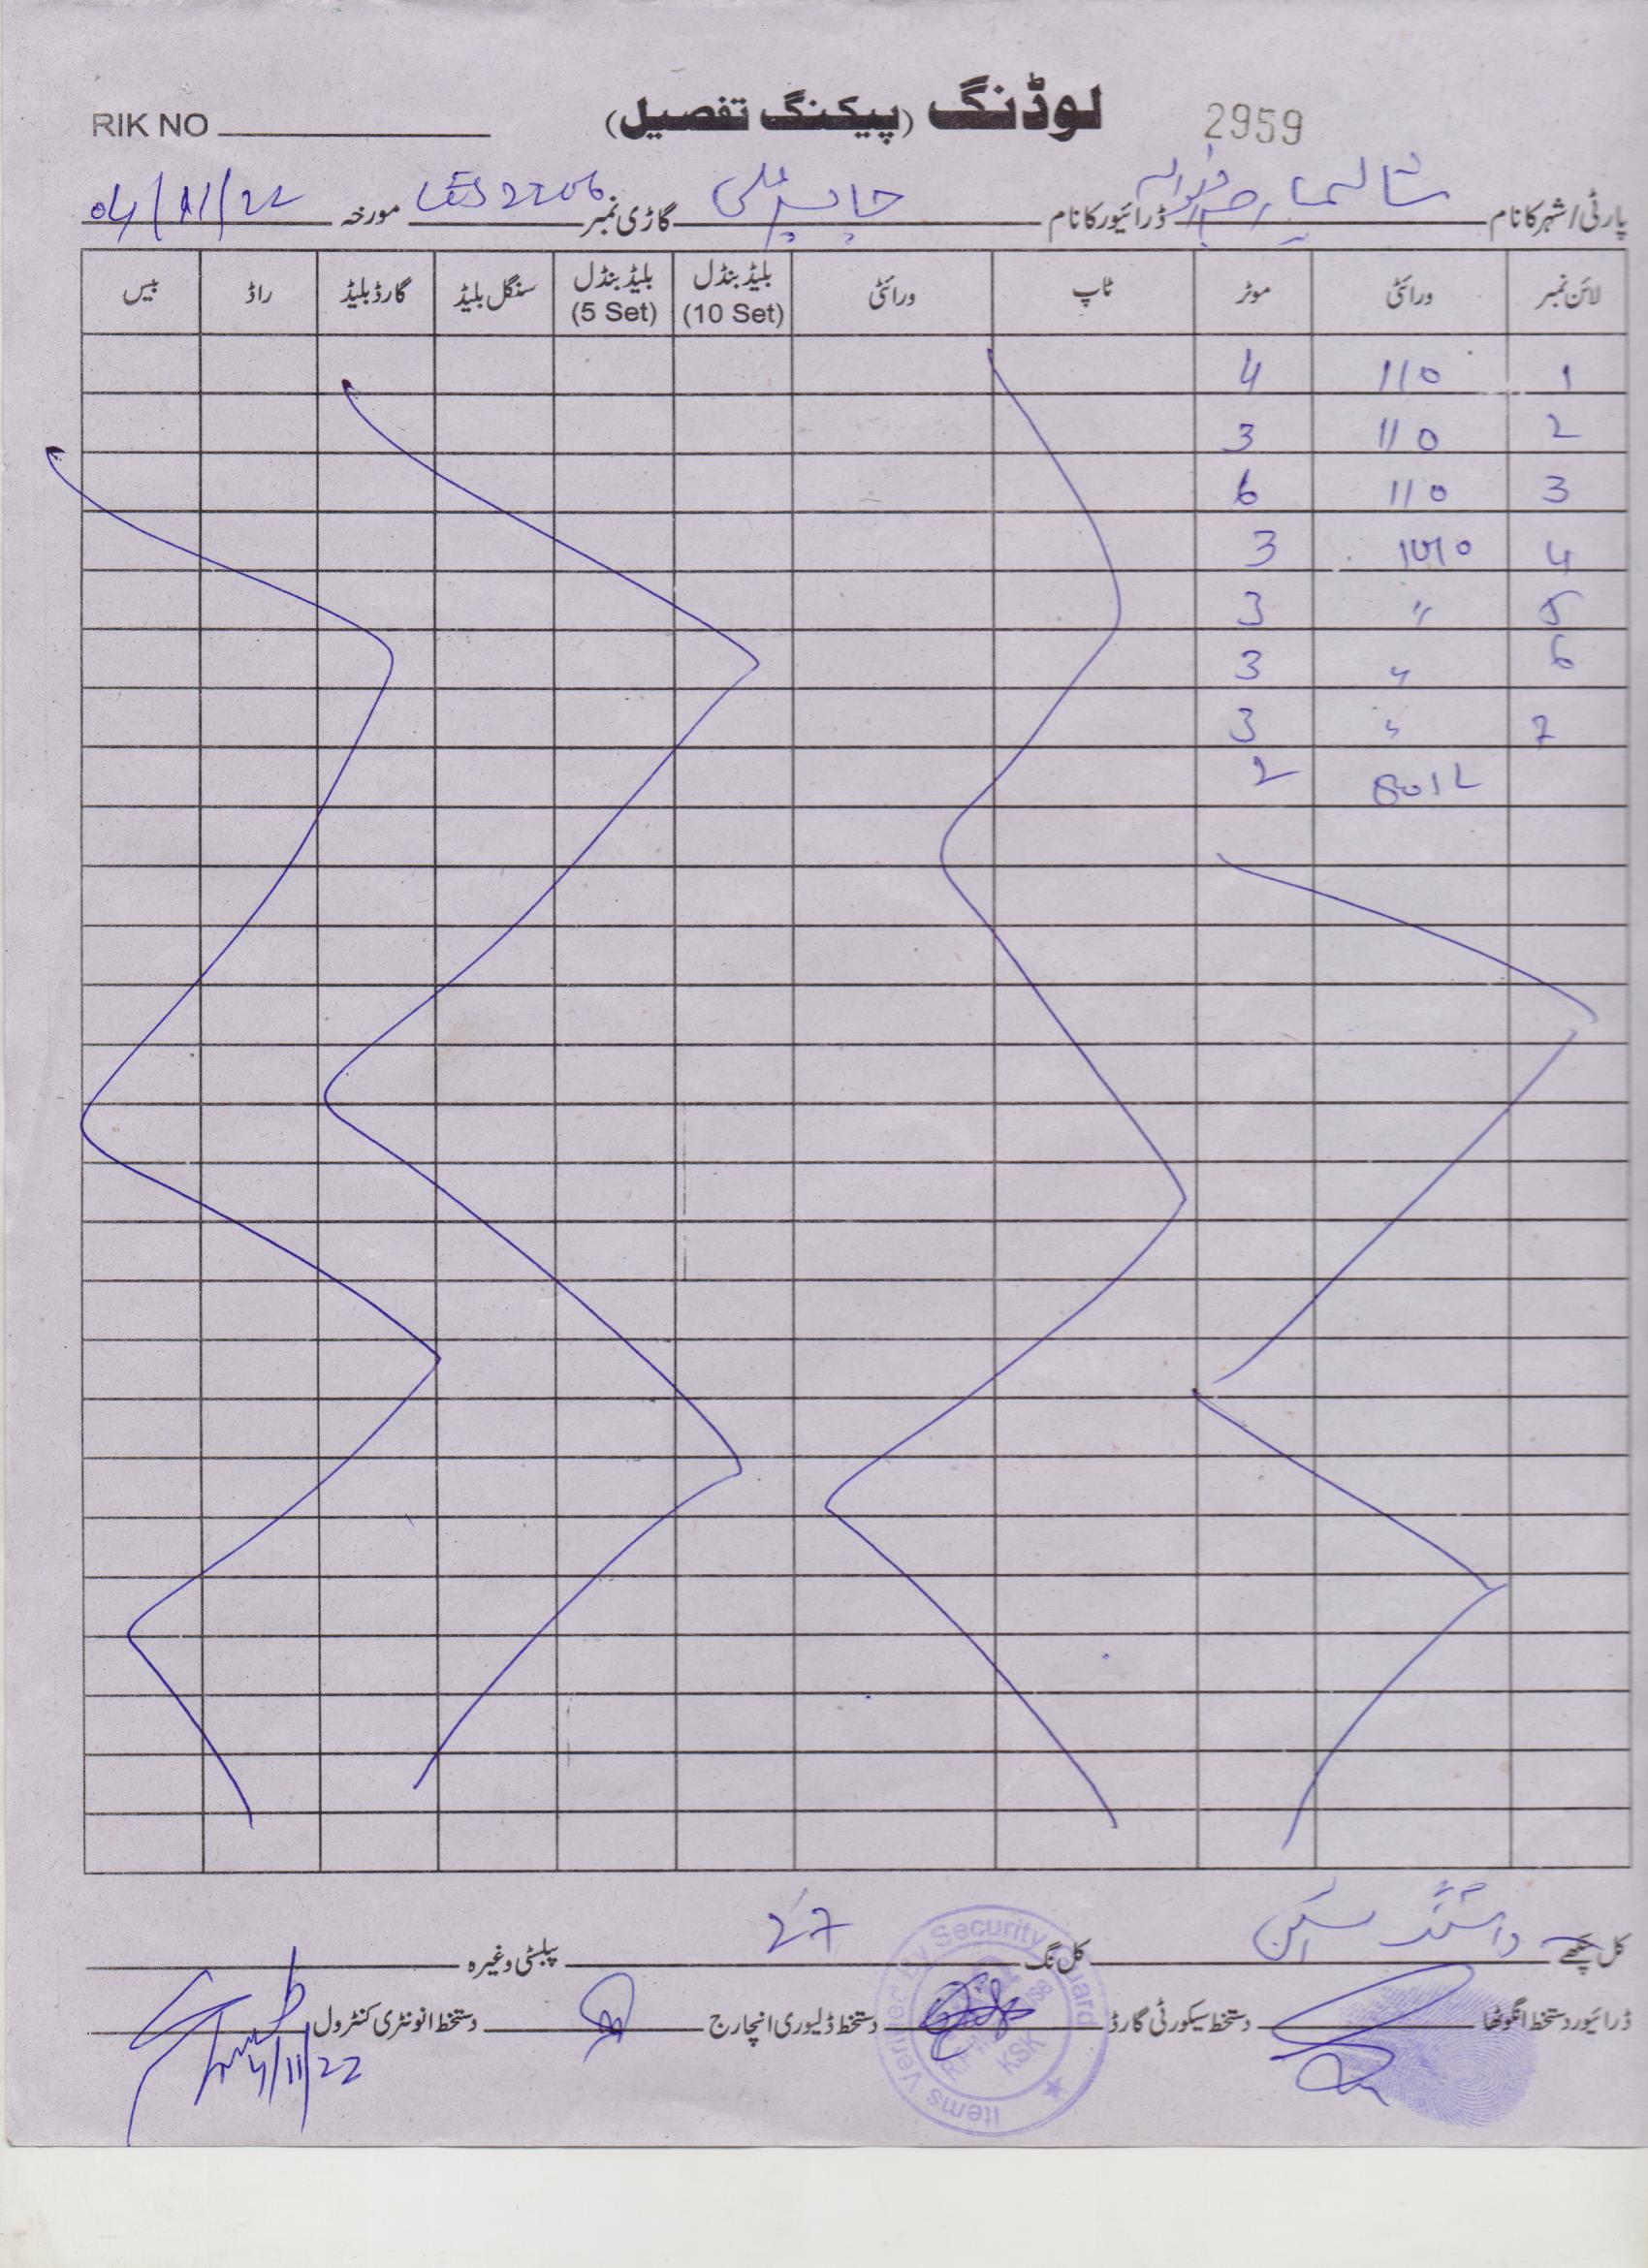 RIK NO لوڈنگ (پیکنگ تفصیل) 2959
پارٹی/شہر کا نام شالیمار ڈرائیور کا نام گاڑی نمبر LES 2206 مورخہ 04/11/22
لائن نمبر ورائٹی موٹر ٹاپ ورائٹی بلیڈ بنڈل (10 Set) بلیڈ بنڈل (5 Set) سنگل بلیڈ گارڈ بلیڈ راڈ بیس
1 110 4
2 110 3
3 110 6
4 1010 3
5 〃 3
6 〃 3
7 〃 3
2
کل پنکھے واشنگ کل نگ 27 پبلسٹی وغیرہ
ڈرائیور دستخط انگوٹھا دستخط سیکورٹی گارڈ دستخط ڈلیوری انچارج دستخط انونٹری کنٹرول
4/11/22
Items Verified By Security Guard
KSK